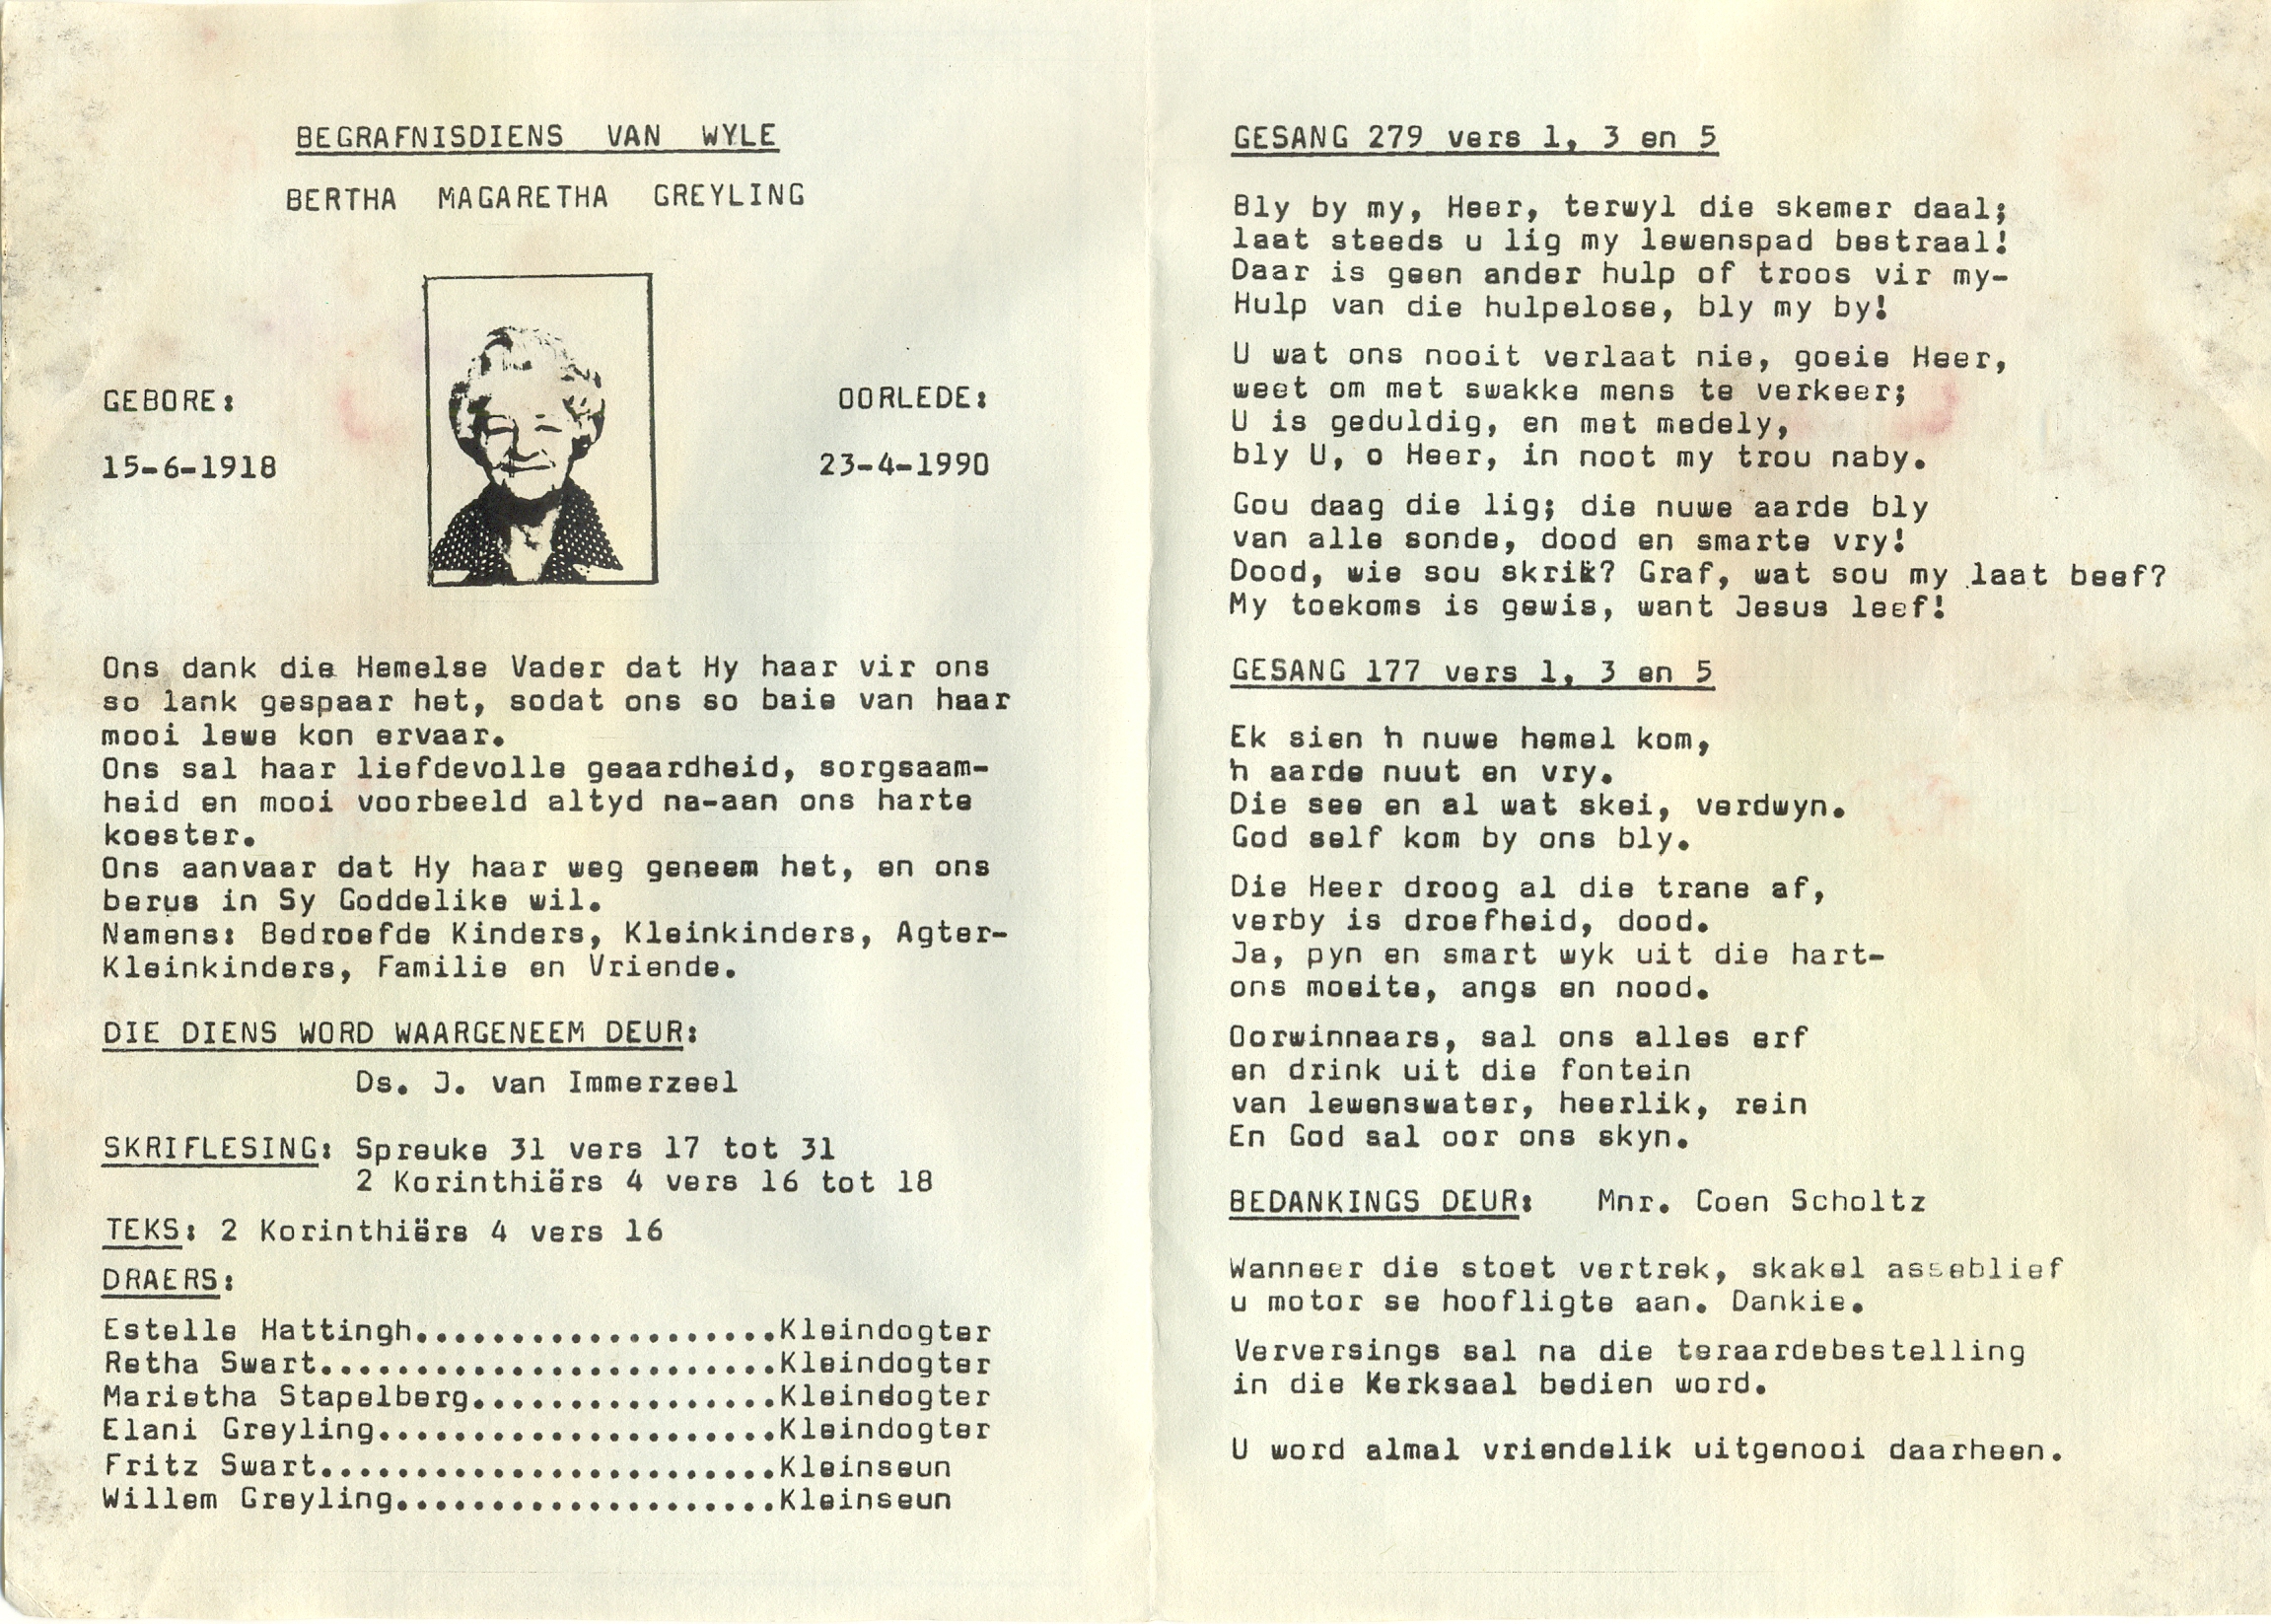 BEGRAFNISDIENS VAN WYLE
BERTHA MAGARETHA GREYLING
GEBORE:
15-6-1918
OORLEDE:
23-4-1990
Ons dank die Hemelse Vader dat Hy haar vir ons
so lank gespaar het, sodat ons so baie van haar
mooi lewe kon ervaar.
Ons sal haar liefdevolle geaardheid, sorgsaam-
heid en mooi voorbeeld altyd na-aan ons harte
koester.
Ons aanvaar dat Hy haar weg geneem het, en ons
berus in Sy Goddelike wil.
Namens: Bedroefde Kinders, Kleinkinders, Agter-
Kleinkinders, Familie en Vriende.
DIE DIENS WORD WAARGENEEM DEUR:
Ds. J. van Immerzeel
SKRIFLESING: Spreuke 31 vers 17 tot 31
2 Korinthiërs 4 vers 16 tot 18
TEKS: 2 Korinthiërs 4 vers 16
DRAERS:
Estelle Hattingh...................Kleindogter
Retha Swart........................Kleindogter
Marietha Stapelberg................Kleindogter
Elani Greyling.....................Kleindogter
Fritz Swart........................Kleinseun
Willem Greyling....................Kleinseun
GESANG 279 vers 1, 3 en 5
Bly by my, Heer, terwyl die skemer daal;
laat steeds u lig my lewenspad bestraal!
Daar is geen ander hulp of troos vir my-
Hulp van die hulpelose, bly my by!
U wat ons nooit verlaat nie, goeie Heer,
weet om met swakke mens te verkeer;
U is geduldig, en met medely,
bly U, o Heer, in noot my trou naby.
Gou daag die lig; die nuwe aarde bly
van alle sonde, dood en smarte vry!
Dood, wie sou skrik? Graf, wat sou my laat beef?
My toekoms is gewis, want Jesus leef!
GESANG 177 vers 1, 3 en 5
Ek sien 'n nuwe hemel kom,
'n aarde nuut en vry.
Die see en al wat skei, verdwyn.
God self kom by ons bly.
Die Heer droog al die trane af,
verby is droefheid, dood.
Ja, pyn en smart wyk uit die hart-
ons moeite, angs en nood.
Oorwinnaars, sal ons alles erf
en drink uit die fontein
van lewenswater, heerlik, rein
En God sal oor ons skyn.
BEDANKINGS DEUR: Mnr. Coen Scholtz
Wanneer die stoet vertrek, skakel asseblief
u motor se hoofligte aan. Dankie.
Verversings sal na die teraardebestelling
in die Kerksaal bedien word.
U word almal vriendelik uitgenooi daarheen.